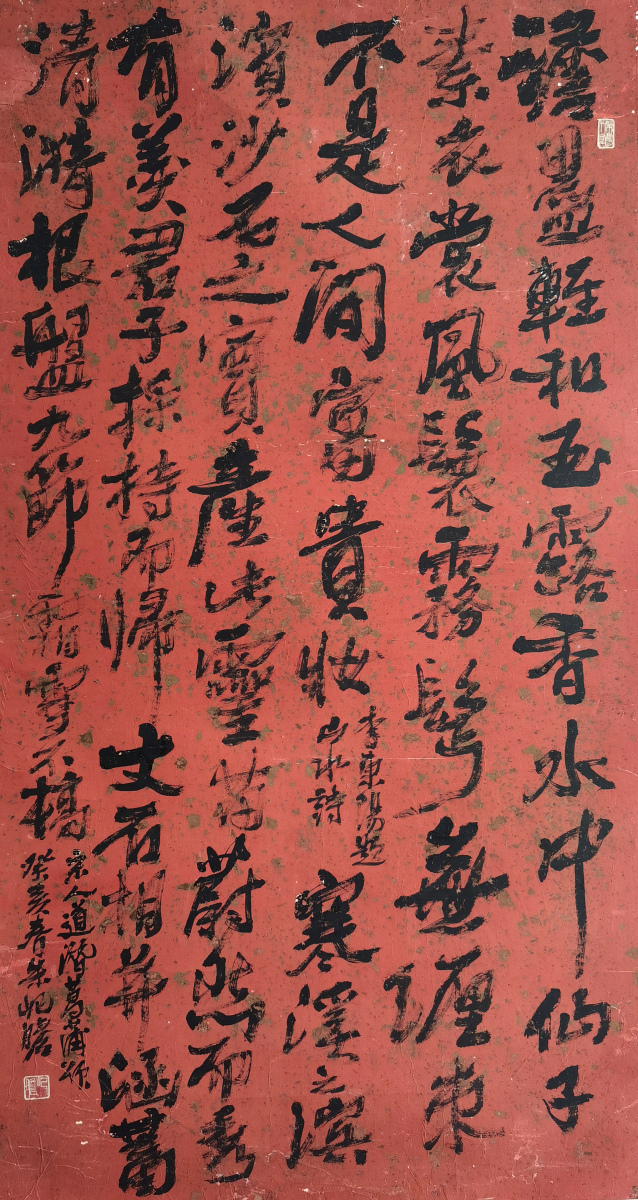 澹墨輕和玉露香水中仙子
素衣裳風鬟霧鬢無纏束
不是人間富貴妝
李東陽題
水仙詩
寒溪之濱
濱沙石之竇產此靈苗蔚然而秀
有美君子採持而歸文石相并涵蓄
清漪根盤九節霜雪不槁
宋人道潛菖蒲頌
癸亥春朱屺瞻